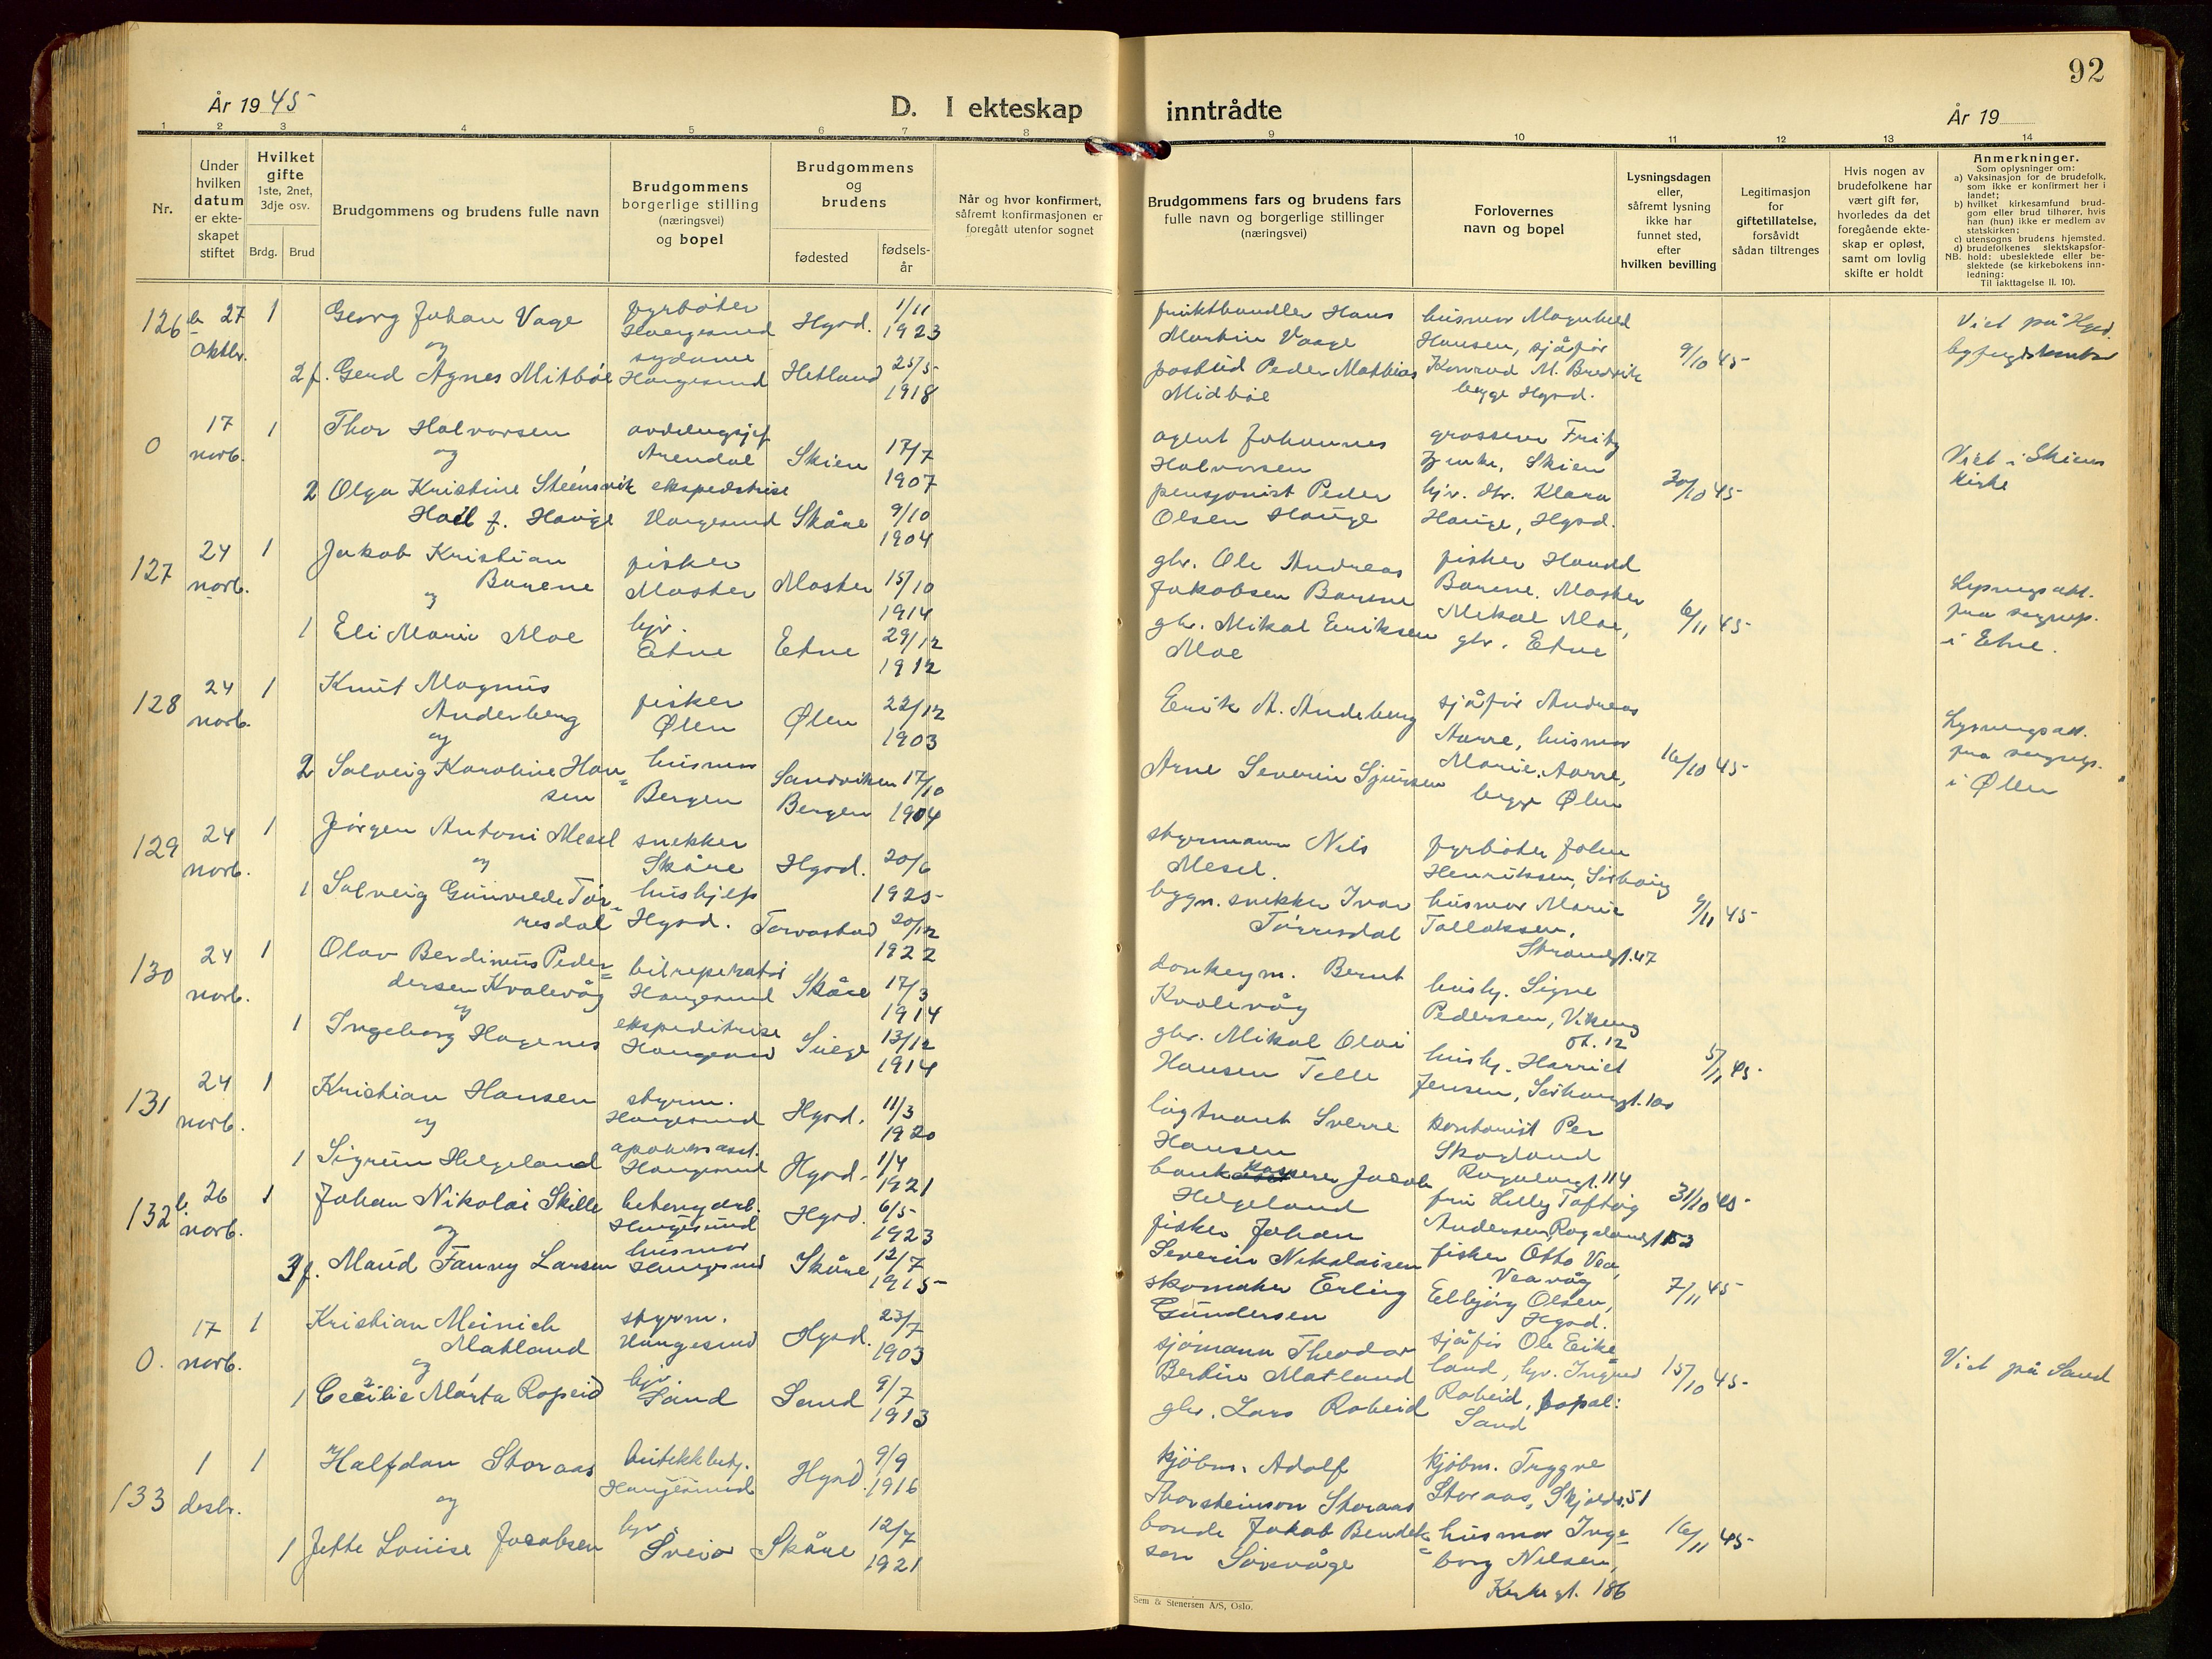 92
År 1945
D. I ekteskap inntrådte
År 19
1 2 3 4 5 6 7 8 9 10 11 12 13 14
Nr.
Under
hvilken
datum
er ekte-
skapet
stiftet
Hvilket
gifte
1ste, 2net,
3dje osv.
Brdg. Brud
Brudgommens og brudens fulle navn
Brudgommens
borgerlige stilling
(næringsvei)
og bopel
Brudgommens
og
brudens
fødested
fødsels-
år
Når og hvor konfirmert,
såfremt konfirmasjonen er
foregått utenfor sognet
Brudgommens fars og brudens fars
fulle navn og borgerlige stillinger
(næringsvei)
Forlovernes
navn og bopel
Lysningsdagen
eller,
såfremt lysning
ikke har
funnet sted,
efter
hvilken bevilling
Legitimasjon
for
giftetillatelse,
forsåvidt
sådan tiltrenges
Hvis nogen av
brudefolkene har
vært gift før,
hvorledes da det
foregående ekte-
skap er opløst,
samt om lovlig
skifte er holdt
Anmerkninger.
Som oplysninger om:
a) Vaksinasjon for de brudefolk,
som ikke er konfirmert her i
landet;
b) hvilket kirkesamfund brud-
gom eller brud tilhører, hvis
han (hun) ikke er medlem av
statskirken;
c) utensogns brudens hjemsted.
d) brudefolkenes slektskapsfor-
NB. hold: ubeslektede eller be-
slektede (se kirkebokens inn-
ledning:
Til iakttagelse II. 10).
126 b. 27 oktbr. 1
Georg Johan Vage
fyrbøter
Haugesund
Hgsd.
1/11
1923
og
2 f. Gerd Agnes Mitbøe
sydame
Haugesund
Hetland
25/5
1918
frukthandler Hans
Martin Vaage
postbud Peder Mathias
Midbøe
husmor Magnhild
Hansen, sjåfør
Konrad M. Bredvik
begge Hgsd.
9/10 45
Viet på Hgsd.
byfogdkontor
0 17 novb. 1
Thor Halvorsen
avdelingsjef
Arendal
Skien
17/7
1907
og
2 Olga Kristine Steensvik
Hoel f. Hauge
ekspeditrise
Haugesund
Skåre
9/10
1904
agent Johannes
Halvorsen
pensjonist Peder
Olsen Hauge
grosserer Fritz
Skien
hjv. dtr. Klara
Hauge, Hgsd.
20/10 45
Viet i Skiens
kirke
127 24 novb. 1
Jakob Kristian
Barene
fisker
Moster
Moster
15/10
1914
og
1 Eli Marie Moe
hjv.
Etne
Etne
29/12
1912
gbr. Ole Andreas
Jakobsen Barene
gbr. Mikal Eriksen
Moe
fisker Harald
Barene, Moster
Mikal Moe,
gbr. Etne
6/11 45
Lysningsatt.
fra sognep.
i Etne.
128 24 novb. 1
Knut Magnus
Anderberg
fisker
Ølen
Ølen
22/12
1903
og
2 Solveig Karoline Han-
sen
husmor
Bergen
Sandviken
Bergen
17/10
1904
Erik A. Andeberg
Arne Severin Sjursen
sjåfør Andreas
Aarre, husmor
Marie Aarre,
begge Ølen
16/10 45
Lysningsatt.
fra sogneps.
i Ølen
129 24 novb. 1
Jørgen Antoni Mesel
snekker
Skåre
Hgsd.
20/6
1925
og
1 Solveig Gunvelde Tør-
resdal
hushjelp
Hgsd.
Torvastad
20/12
1922
styrmann Nils
Mesel.
bygn. snekker Ivar
Tørresdal
fyrbøter John
Henriksen,
husmor Marie
Tollaksen,
Strandgt. 47
9/11 45
130 24 novb. 1
Olav Berdinius Peder-
dersen Kvalevåg
bilreperatør
Haugesund
Skåre
17/3
1914
og
1 Ingeborg Hagenes
ekspeditrise
Haugesund
13/12
1914
donkeym. Bernt
Kvalevåg
gbr. Mikal Olai
Hansen Telle
hush. Signe
Pedersen, Viking
st. 12
hush. Harriet
Jensen,
5/11 45
131 24 novb. 1
Kristian Hansen
styrm.
Haugesund
Hgsd.
11/3
1920
og
1 Sigrun Helgeland
Haugesund
Hgsd.
1/4
1921
Sverre
Hansen
bankkasserer Jacob
Helgeland
kontorist Per
Skogland
114
fru Lilly Toftøig
Andersen,
31/10 45
132 b. 26 novb. 1
Johan Nikolai Skille
Haugesund
Hgsd.
6/5
1923
og
3 f. Maud Fanny Larsen
husmor
Haugesund
Skåre
12/7
1915
fisker Johan
Severin Nikolaisen
skomaker Erling
Gundersen
fisker Otto Vea,
Veavåg
Eldbjørg Olsen,
Hgsd.
7/11 45
0. 17 novb. 1
Kristian Meinich
Matland
styrm.
Haugesund
Hgsd.
23/7
1903
og
1 Cecilie Márta Ropeid
hjv.
Sand
Sand
9/7
1913
sjømann Theodor
Bertin Matland
gbr. Lars Robeid
sjåfør Ole Eike
land, hjv. Ingrid
Robeid, bopæl:
Sand
15/10 45
Viet på Sand
133 1 desbr. 1
Halfdan Storaas
butikkbetj.
Haugesund
Hgsd.
9/9
1916
og
1 Jette Louise Jacobsen
hjv.
Sveio
Skåre
12/7
1921
kjøbm. Adolf
Thorsteinson Storaas
bonde Jakob Bendik-
sen Sørvåge
kjøbm. Trygve
Storaas, Skjoldv. 51
husmor Inge-
borg Nilsen,
Kirkegt. 186
16/11 45
Sem & Stenersen A/S, Oslo.